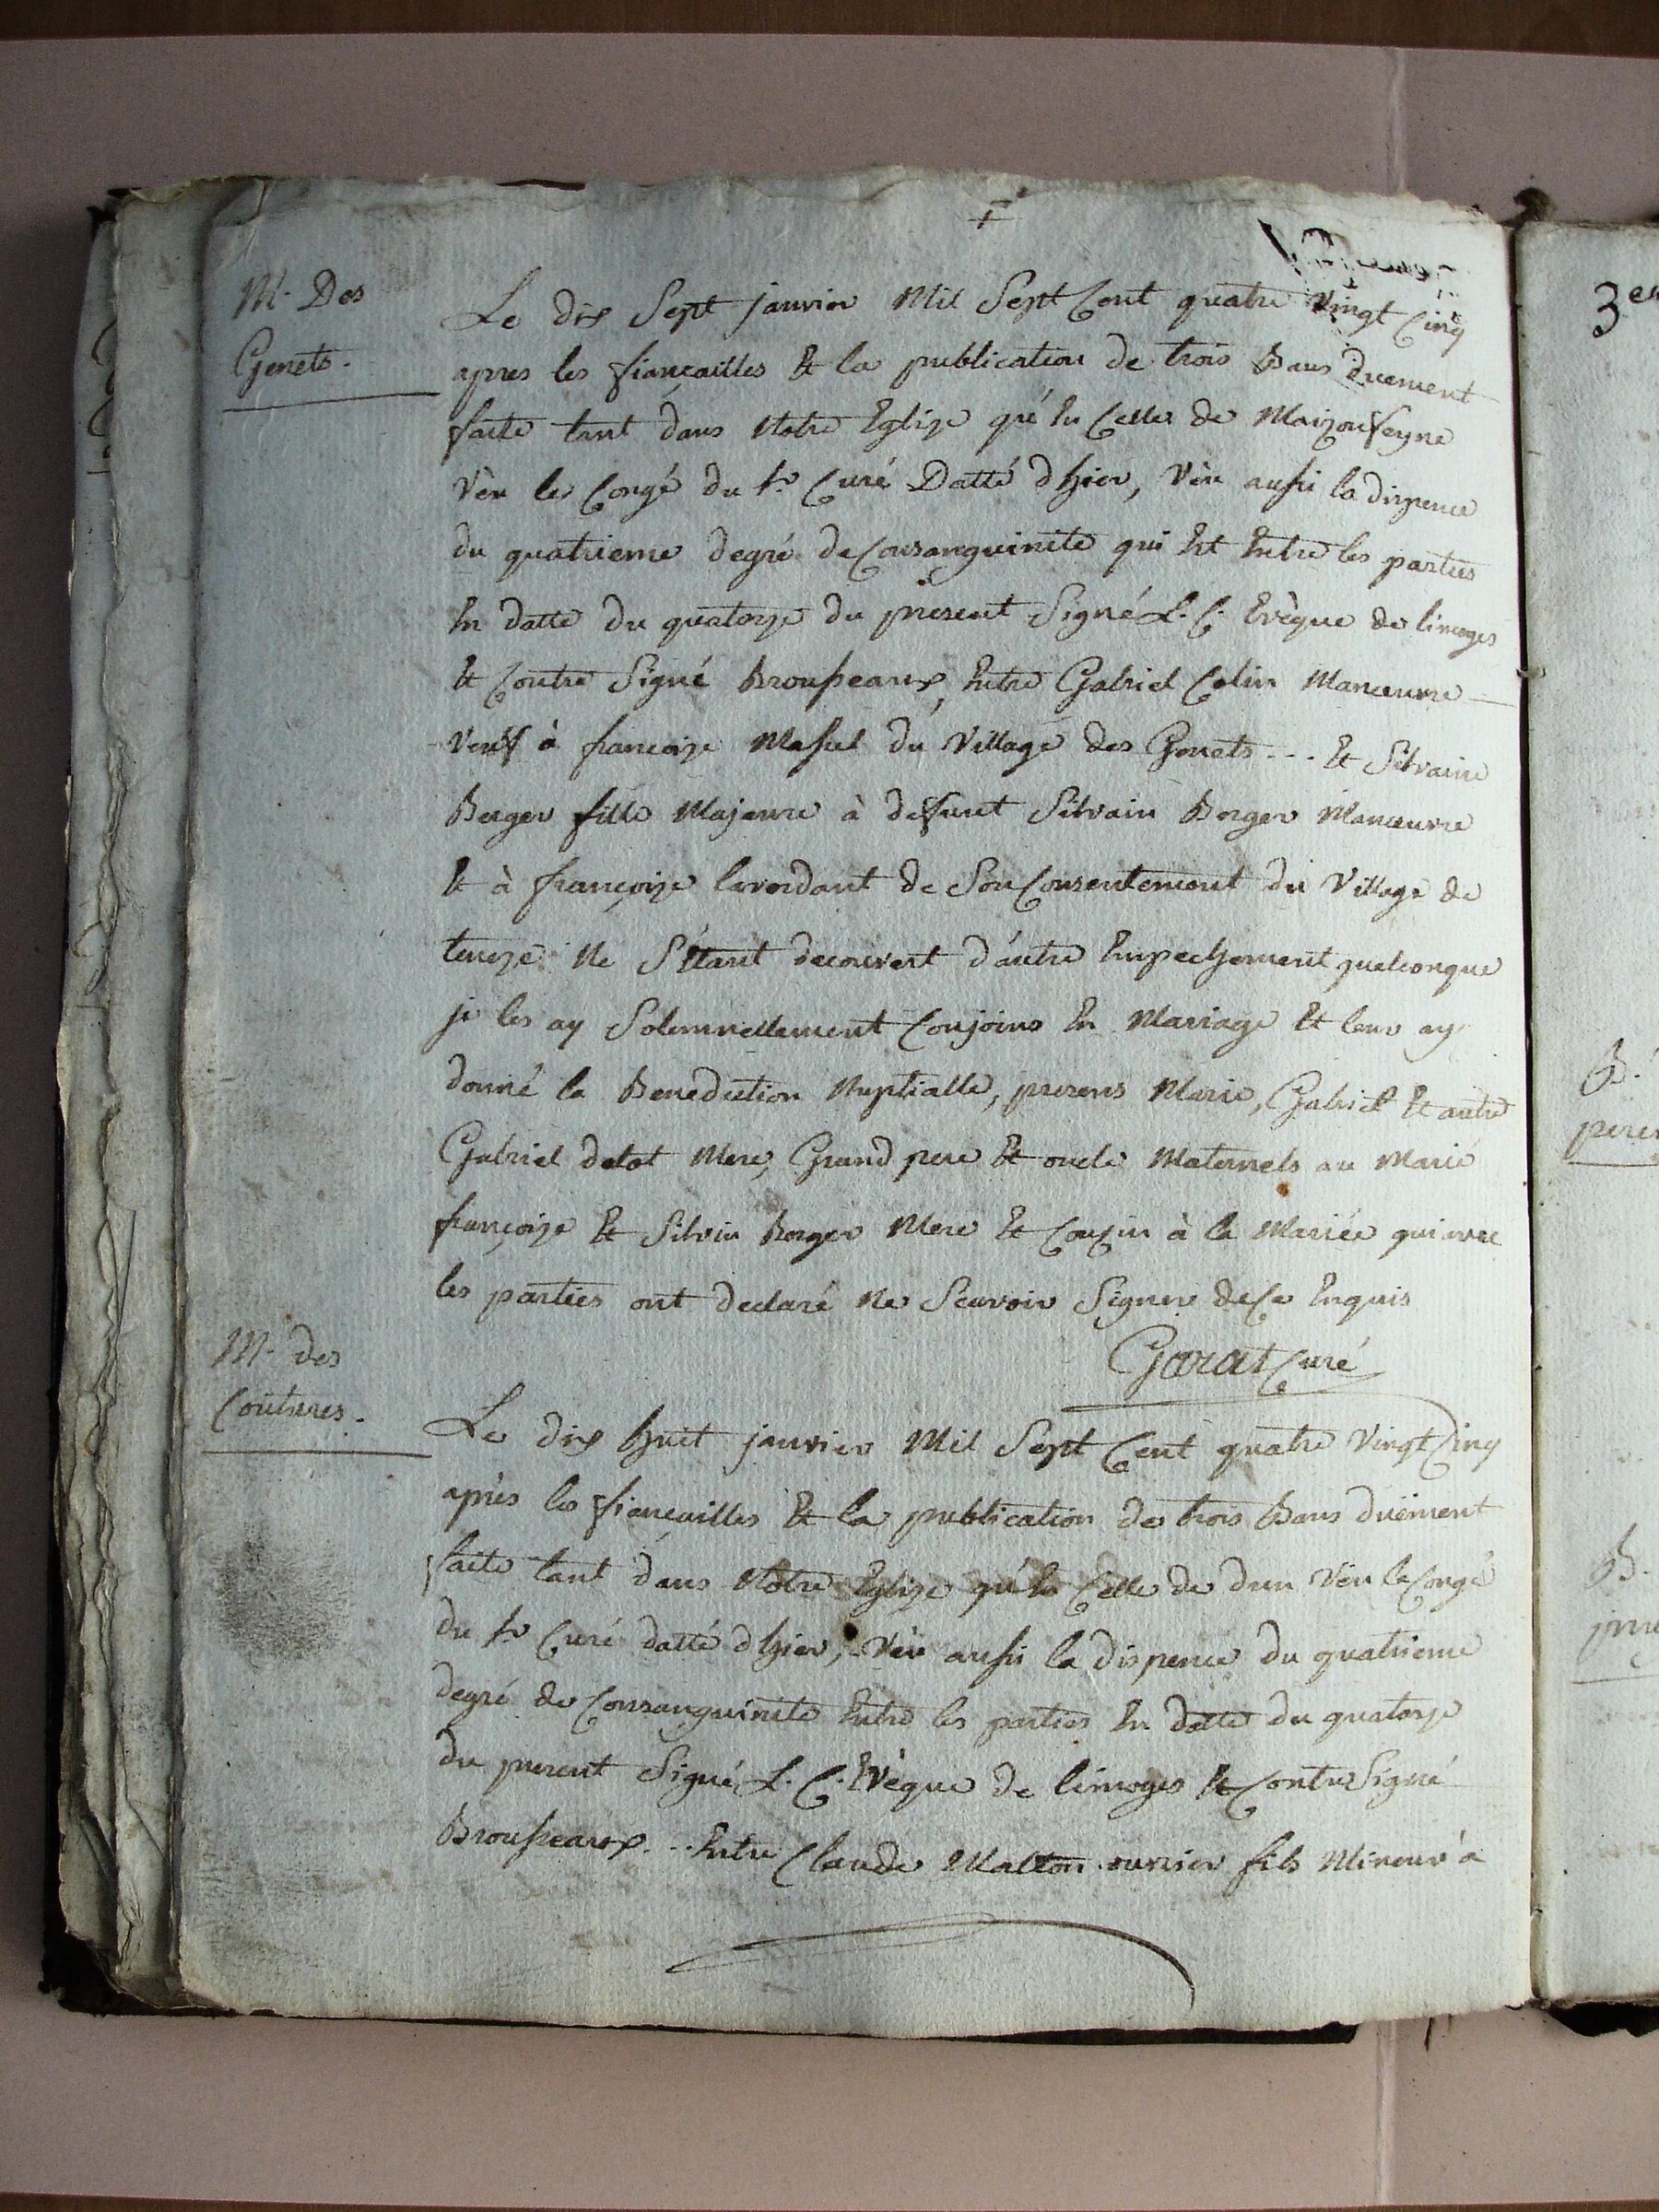 M. Des
Genets.
Le dix Sept janvier Mil Sept Cent quatre Vingt Cinq
apres les fiançailles Et la publication de trois Bans duement
faite tant dans Notre Eglize qu'En Celle de Maizonfeyne
Vëu le Congé du Sr. Curé Datté d'hier, Vëu aussi la dispence
du quatrieme degré de Consanguinité qui Est Entre les parties
En datte du quatorze du present Signé L. C. Evèque de limoges
Et Contre Signé Brousseaux, Entre Gabriel Colin Manœuvre
Veuf à francoize Massiel du Village des Genets... Et Silvaine
Berger fille Majeure à defunt Silvain Berger Manœuvre
Et à françoize Lavordant de Son Consentement du Village de
Ne S'Etant decouvert d'autre Empechement quelconque
je les ay Solemnellement Conjoins En Mariage Et leur ay
donné la Benediction Nuptialle, prezens Marie, Gabriel Et autre
Gabriel delot Mere, Grand pere Et oncle Maternels au Marié
françoize Et Silvin Berger Mere Et Couzin à la Mariée qui avec
les parties ont declaré Ne Scavoir Signer de Ce Enquis
Garat Curé
M. des
Coutures.
Le dix huit janvier Mil Sept Cent quatre Vingt Cinq
après les fiancailles Et la publication de trois Bans duëment
faite tant dans Notre Eglize qu'En Celle de dun Vëu le Congé
du Sr Curé datté d'hier, Vëu aussi la dispence du quatrieme
degré de Consanguinité Entre les parties En datte du quatorze
du prezent Signé L. C. Evèque de limoges Et Contre Signé
Brousseaux... Entre Claude Malton ouvrier fils Mineur à
3e
B.
B.